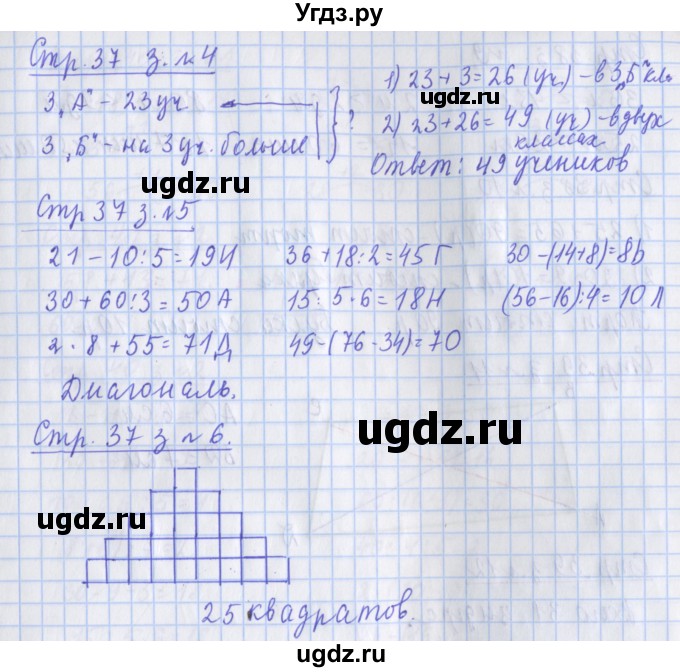 Угдз.ру
Стр. 37 з. №4
3 „А" - 23 уч
3 „Б" - на 3 уч. больше
?
1) 23 + 3 = 26 (уч.) - в 3„Б" кл.
2) 23 + 26 = 49 (уч) - в двух
классах
Ответ: 49 учеников
Стр 37 з. №5
21 - 10 : 5 = 19 И
36 + 18 : 2 = 45 Г
30 - (14 + 8) = 8 Ь
30 + 60 : 3 = 50 А
15 : 5 · 6 = 18 Н
(56 - 16) : 4 = 10 Л
2 · 8 + 55 = 71 Д
49 - (76 - 34) = 7 О
Диагональ.
Стр. 37 з №6.
25 квадратов.
ugdz.ru
ugdz.ru
ugdz.ru
ugdz.ru
ugdz.ru
ugdz.ru
ugdz.ru
ugdz.ru